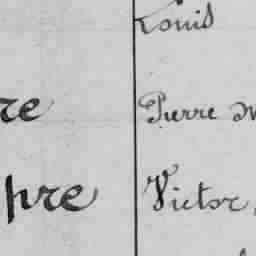 Louis
re Pierre
pre Victor,